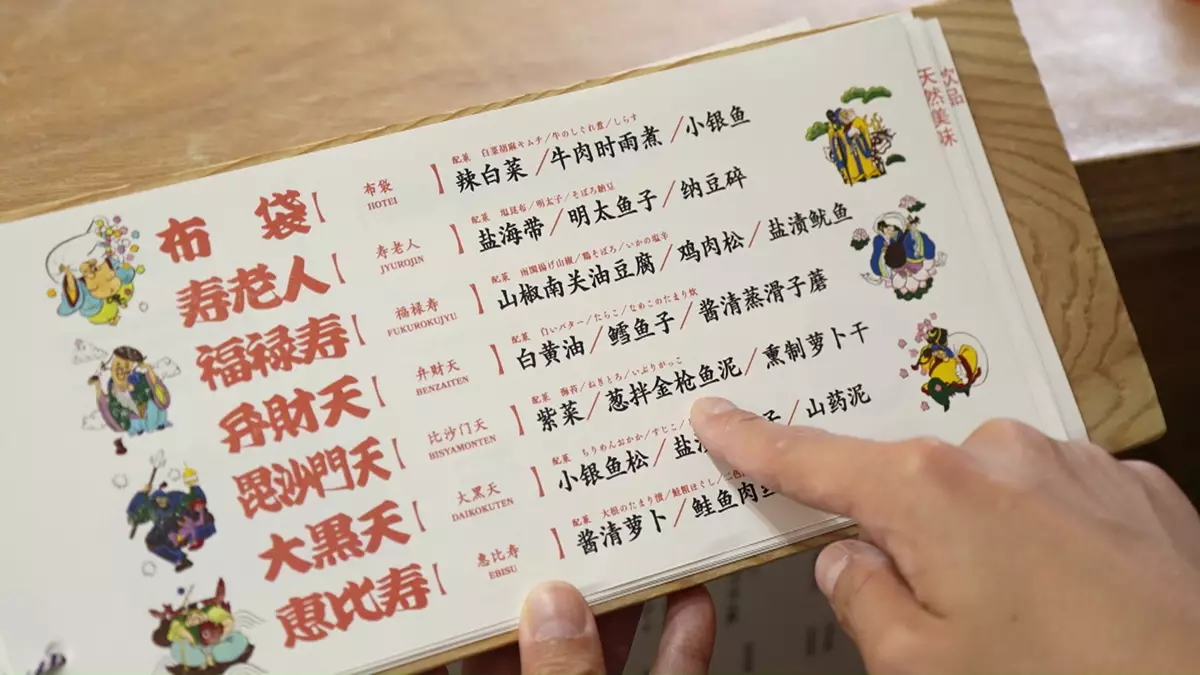 布袋
布袋
HOTEI
配菜 白菜胡麻キムチ/牛のしぐれ煮/しらす
辣白菜/牛肉时雨煮/小银鱼
寿老人
寿老人
JYUROJIN
配菜 塩昆布/明太子/そぼろ納豆
盐海带/明太鱼子/纳豆碎
福禄寿
福禄寿
FUKUROKUJYU
配菜 南関揚げ山椒/鶏そぼろ/いかの塩辛
山椒南关油豆腐/鸡肉松/盐渍鱿鱼
弁財天
弁財天
BENZAITEN
配菜 白いバター/たらこ/なめこのたまり炊
白黄油/鳕鱼子/酱清蒸滑子蘑
毘沙門天
比沙门天
BISYAMONTEN
配菜 海苔/ねぎとろ/いぶりがっこ
紫菜/葱拌金枪鱼泥/熏制萝卜干
大黒天
大黑天
DAIKOKUTEN
配菜 ちりめんおかか/すじこ/
小银鱼松/盐渍 子/山药泥
恵比寿
惠比寿
EBISU
配菜 大根のたまり漬/鮭粗ほぐし/二色
酱清萝卜/鲑鱼肉
饮品
天然美味